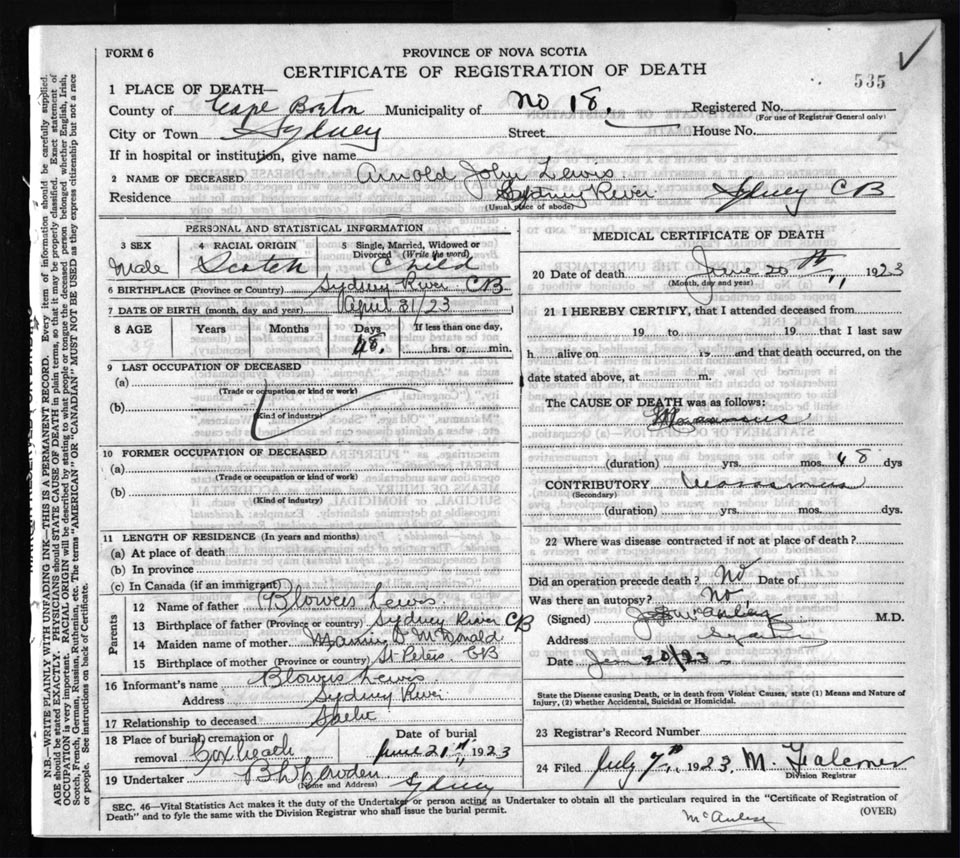 FORM 6
PROVINCE OF NOVA SCOTIA
CERTIFICATE OF REGISTRATION OF DEATH
535
1 PLACE OF DEATH—
County of Cape Breton Municipality of No 18. Registered No.
(For use of Registrar General only)
City or Town Sydney Street House No.
If in hospital or institution, give name
2 NAME OF DECEASED Arnold John Lewis
Residence Sydney River Sydney CB
(Usual place of abode)
PERSONAL AND STATISTICAL INFORMATION
3 SEX Male
4 RACIAL ORIGIN Scotch
5 Single, Married, Widowed or Divorced (Write the word) Child
6 BIRTHPLACE (Province or Country) Sydney River CB
7 DATE OF BIRTH (month, day and year) April 31/23
8 AGE Years Months Days 48. If less than one day, hrs. or min.
39
9 LAST OCCUPATION OF DECEASED
(a)
(Trade or occupation or kind or work)
(b)
(Kind of industry)
10 FORMER OCCUPATION OF DECEASED
(a)
(Trade or occupation or kind of work)
(b)
(Kind of industry)
11 LENGTH OF RESIDENCE (In years and months)
(a) At place of death
(b) In province
(c) In Canada (if an immigrant)
Parents
12 Name of father Blowers Lewis
13 Birthplace of father (Province or country) Sydney River CB
14 Maiden name of mother Mamie D McDonald
15 Birthplace of mother (Province or country) St Peters CB
16 Informant's name Blowers Lewis
Address Sydney River
17 Relationship to deceased
18 Place of burial, cremation or removal Coxheath
Date of burial June 21st, 1923
19 Undertaker
(Name and Address) Sydney
MEDICAL CERTIFICATE OF DEATH
20 Date of death June 20th, 1923
(Month, day and year)
21 I HEREBY CERTIFY, that I attended deceased from
19 to 19 that I last saw
h alive on 19 and that death occurred, on the
date stated above, at m.
The CAUSE OF DEATH was as follows:
Marasmus
(duration) yrs. mos. 48 dys
CONTRIBUTORY Marasmus
(Secondary)
(duration) yrs. mos. dys.
22 Where was disease contracted if not at place of death?
Did an operation precede death? No Date of
Was there an autopsy? No
(Signed) M.D.
Address
Date 20/23
State the Disease causing Death, or in death from Violent Causes, state (1) Means and Nature of
Injury, (2) whether Accidental, Suicidal or Homicidal.
23 Registrar's Record Number
24 Filed July 7th, 1923 M. Falconer
Division Registrar
SEC. 46—Vital Statistics Act makes it the duty of the Undertaker or person acting as Undertaker to obtain all the particulars required in the "Certificate of Registration of
Death" and to fyle the same with the Division Registrar who shall issue the burial permit.
(OVER)
N.B.—WRITE PLAINLY WITH UNFADING INK—THIS IS A PERMANENT RECORD. Every item of information should be carefully supplied.
AGE should be stated EXACTLY. PHYSICIANS should STATE CAUSE OF DEATH in plain terms, so that it may be properly classified. Exact statement of
OCCUPATION is very important. RACIAL ORIGIN will be described by stating to what people or tongue the deceased person belonged whether English, Irish,
Scotch, French, German, Russian, Ruthenian, etc. The terms "AMERICAN" OR "CANADIAN" MUST NOT BE USED as they express citizenship but not a race
or people. See instructions on back of Certificate.